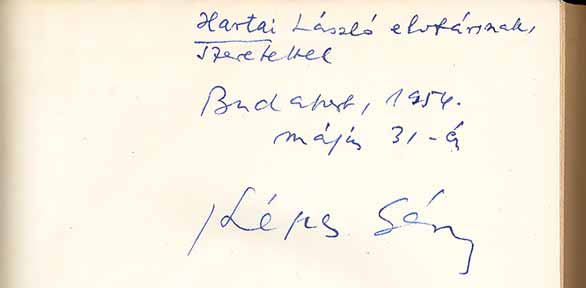 Hartai László elvtársnak,
szeretettel
Budapest, 1954.
május 31-én
Képes Géza